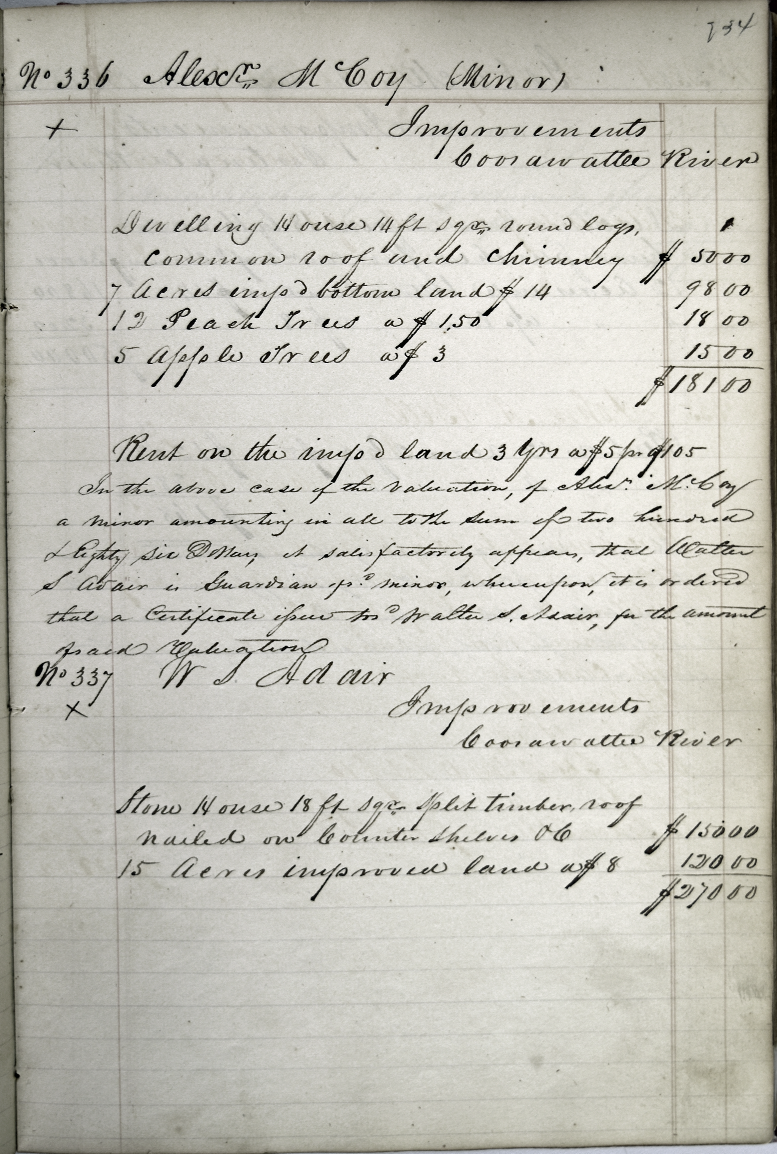 734
No 336 Alexr. McCoy (Minor)
+ Improvements
Coosawattee River
Dwelling House 14 ft sqr. round logs,
common roof and chimney $ 50 00
7 Acres imp'd bottom land $ 14 98 00
12 Peach Trees a $ 1.50 18 00
5 Apple Trees a $ 3 15 00
$ 181 00
Rent on the imp'd land 3 Yrs a $5 pr a $105
In the above case of the valuation, of Alexr. McCoy
a minor amounting in all to the sum of two hundred
& Eighty Six Dollars, it satisfactorily appears, that Walter
S Adair is Guardian of sd minor, whereupon, it is ordered
that a Certificate issue to sd Walter S. Adair, for the amount
of said Valuation
No 337 W S Adair
+ Improvements
Coosawattee River
Stone House 18 ft sqr. split timber, roof
nailed on Counter shelves &C $ 150 00
15 Acres improved land a $ 8 120 00
$ 270 00